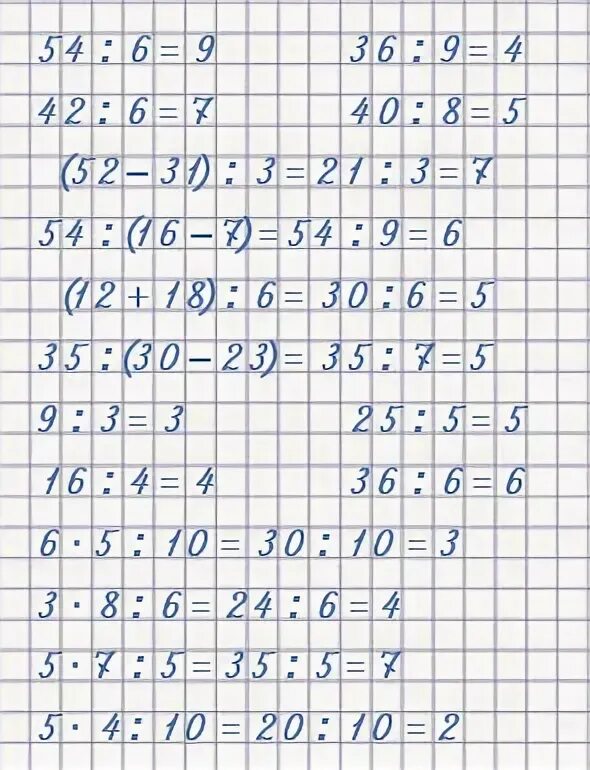 54 : 6 = 9 36 : 9 = 4
42 : 6 = 7 40 : 8 = 5
(52 − 31) : 3 = 21 : 3 = 7
54 : (16 − 7) = 54 : 9 = 6
(12 + 18) : 6 = 30 : 6 = 5
35 : (30 − 23) = 35 : 7 = 5
9 : 3 = 3 25 : 5 = 5
16 : 4 = 4 36 : 6 = 6
6 · 5 : 10 = 30 : 10 = 3
3 · 8 : 6 = 24 : 6 = 4
5 · 7 : 5 = 35 : 5 = 7
5 · 4 : 10 = 20 : 10 = 2